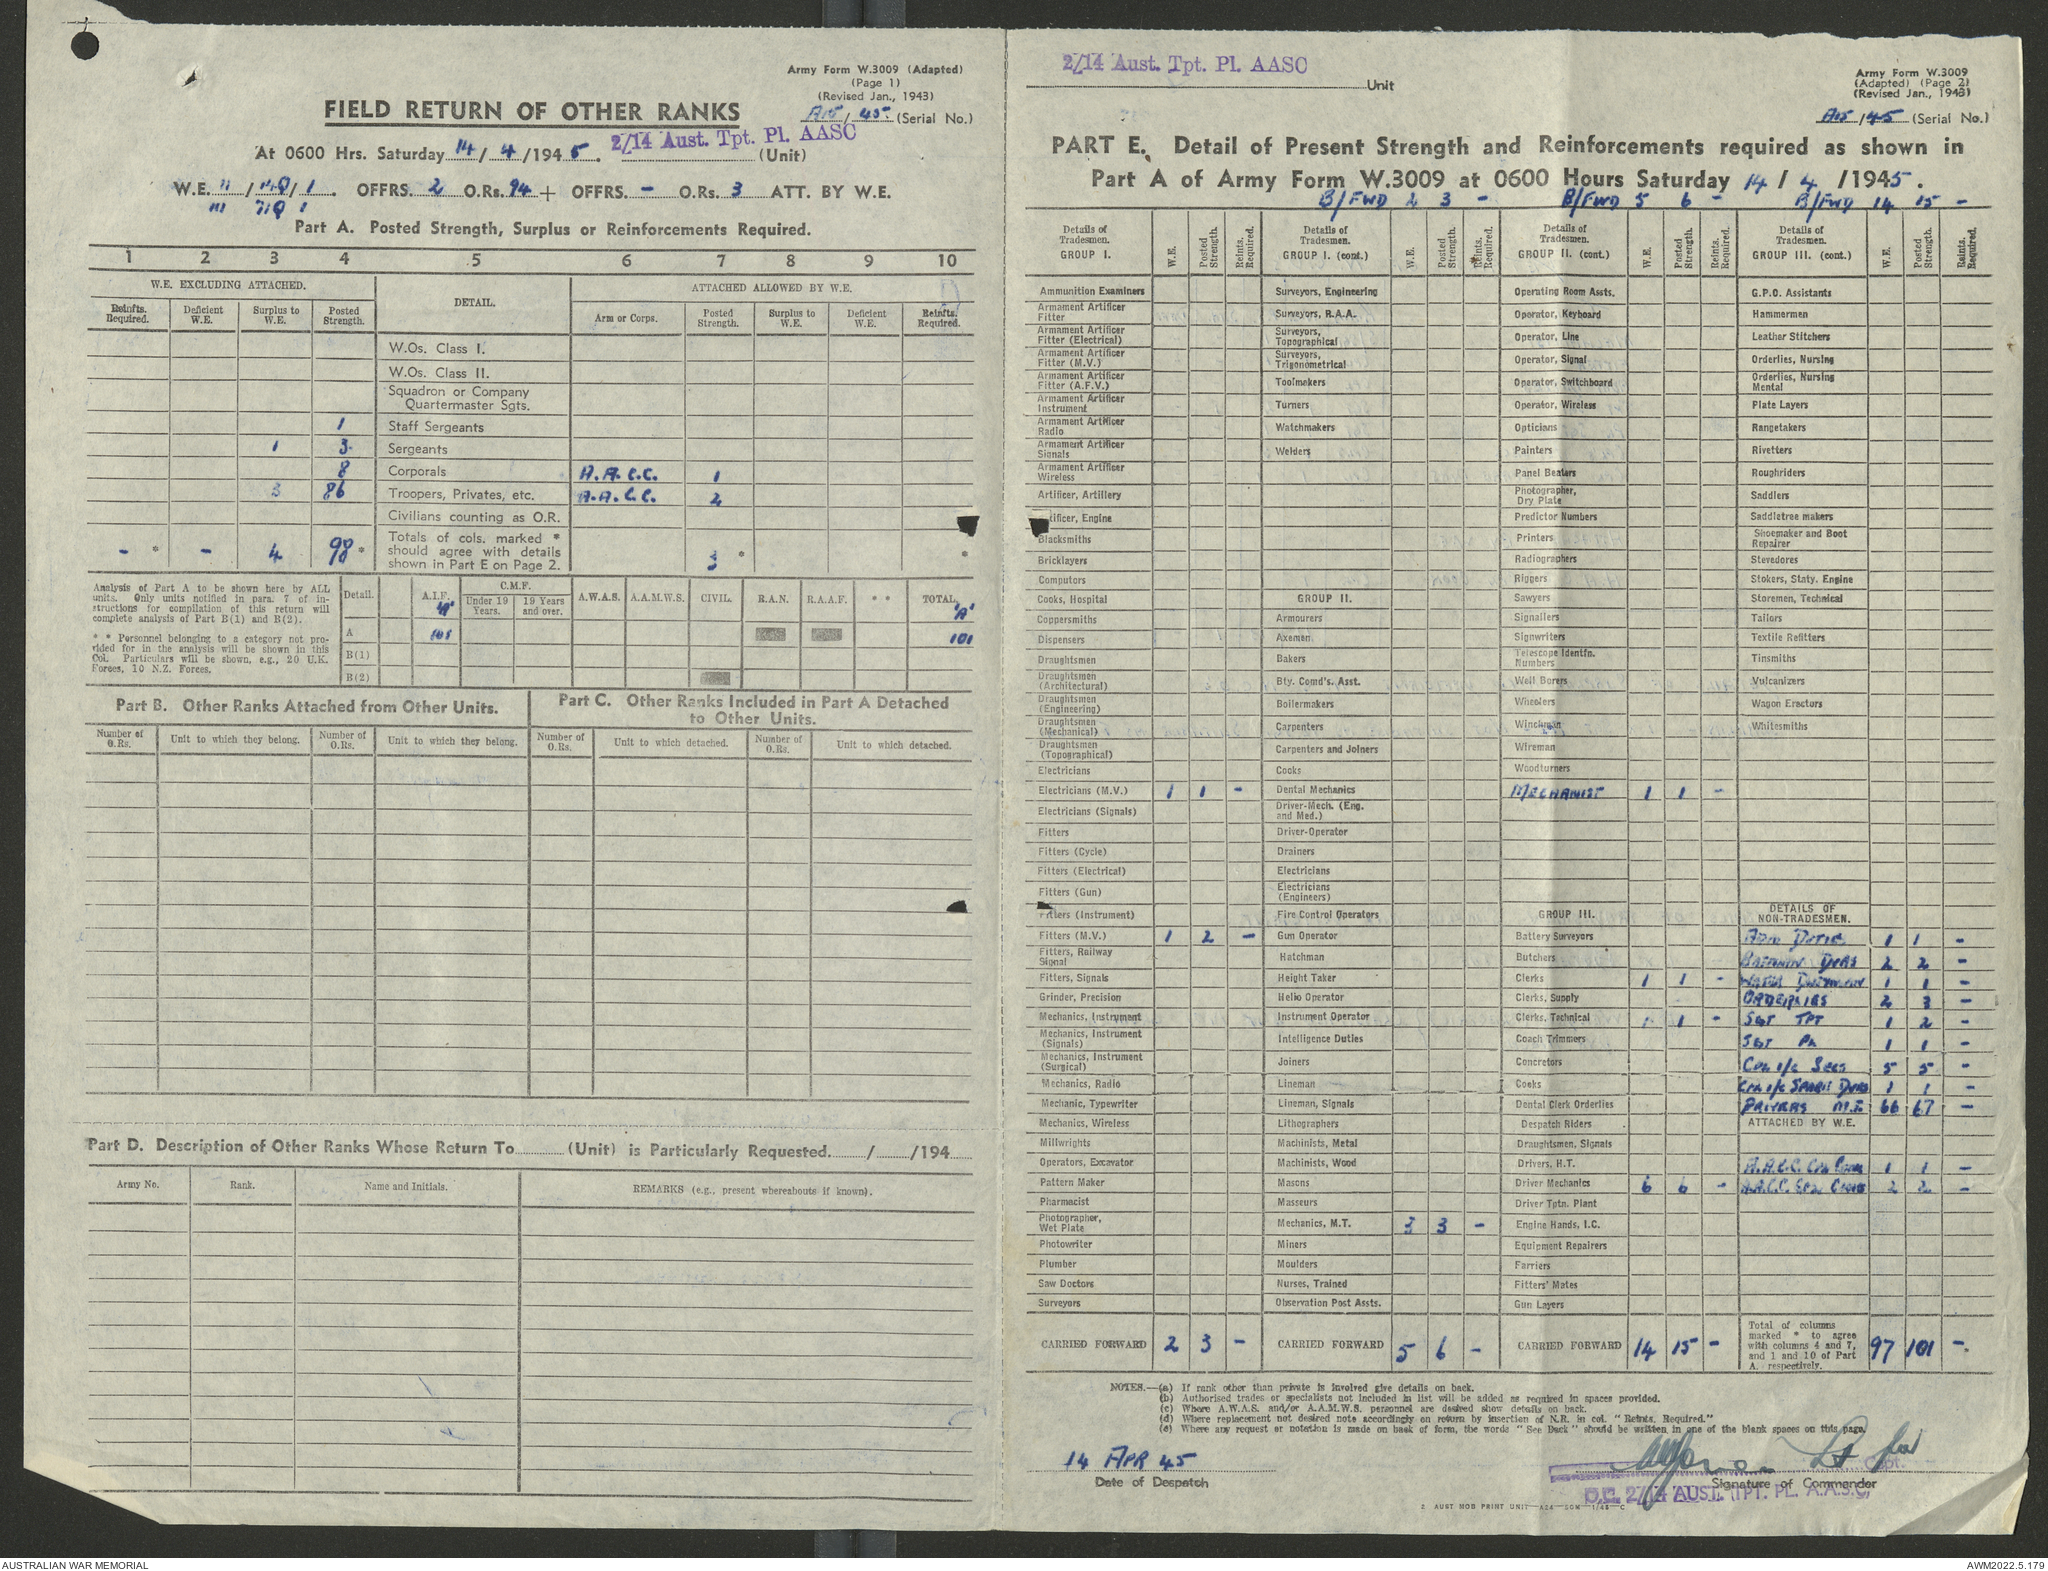 Army Form W.3009 (Adapted)
(Page 1)
(Revised Jan., 1943)
FIELD RETURN OF OTHER RANKS
A15/ 45. (Serial No.)
2/14 Aust. Tpt. Pl. AASC
At 0600 Hrs. Saturday 14/ 4 /194 5. (Unit)
W.E. 11 / / 1 . OFFRS. 2 O.Rs. 94 + OFFRS. – O.Rs. 3 ATT. BY W.E.
111 1
Part A. Posted Strength, Surplus or Reinforcements Required.
1 2 3 4 5 6 7 8 9 10
W.E. EXCLUDING ATTACHED. DETAIL. ATTACHED ALLOWED BY W.E.
Reinfts. Required. Deficient W.E. Surplus to W.E. Posted Strength. Arm or Corps. Posted Strength. Surplus to W.E. Deficient W.E. Reinfts. Required.
W.Os. Class I.
W.Os. Class II.
Squadron or Company
Quartermaster Sgts.
1 Staff Sergeants
1 3 Sergeants
8 Corporals A.A.C.C. 1
3 86 Troopers, Privates, etc. A.A.C.C. 2
Civilians counting as O.R.
– * – 4 98 * Totals of cols. marked * should agree with details shown in Part E on Page 2. 3 * *
Analysis of Part A to be shown here by ALL
units. Only units notified in para. 7 of in-
structions for compilation of this return will
complete analysis of Part B(1) and B(2).
* * Personnel belonging to a category not pro-
vided for in the analysis will be shown in this
Col. Particulars will be shown, e.g., 20 U.K.
Forces, 10 N.Z. Forces.
Detail. A.I.F. C.M.F. Under 19 Years. 19 Years and over. A.W.A.S. A.A.M.W.S. CIVIL. R.A.N. R.A.A.F. * * TOTAL
'A' 'A'
A 101 101
B(1)
B(2)
Part B. Other Ranks Attached from Other Units.
Number of O.Rs. Unit to which they belong. Number of O.Rs. Unit to which they belong.
Part C. Other Ranks Included in Part A Detached
to Other Units.
Number of O.Rs. Unit to which detached. Number of O.Rs. Unit to which detached.
Part D. Description of Other Ranks Whose Return To (Unit) is Particularly Requested. / /194
Army No. Rank. Name and Initials. REMARKS (e.g., present whereabouts if known).
2/14 Aust. Tpt. Pl. AASC
Unit
Army Form W.3009
(Adapted) (Page 2)
(Revised Jan., 1943)
A15 /45 (Serial No.)
PART E. Detail of Present Strength and Reinforcements required as shown in
Part A of Army Form W.3009 at 0600 Hours Saturday 14 / 4 /1945.
B/FWD 2 3 – B/FWD 5 6 – B/FWD 14 15 –
Details of Tradesmen. GROUP I. W.E. Posted Strength. Reints. Required.
Ammunition Examiners
Armament Artificer Fitter
Armament Artificer Fitter (Electrical)
Armament Artificer Fitter (M.V.)
Armament Artificer Fitter (A.F.V.)
Armament Artificer Instrument
Armament Artificer Radio
Armament Artificer Signals
Armament Artificer Wireless
Artificer, Artillery
tificer, Engine
Blacksmiths
Bricklayers
Computors
Cooks, Hospital
Coppersmiths
Dispensers
Draughtsmen
Draughtsmen (Architectural)
Draughtsmen (Engineering)
Draughtsmen (Mechanical)
Draughtsmen (Topographical)
Electricians
Electricians (M.V.) 1 1 –
Electricians (Signals)
Fitters
Fitters (Cycle)
Fitters (Electrical)
Fitters (Gun)
Fitters (Instrument)
Fitters (M.V.) 1 2 –
Fitters, Railway Signal
Fitters, Signals
Grinder, Precision
Mechanics, Instrument
Mechanics, Instrument (Signals)
Mechanics, Instrument (Surgical)
Mechanics, Radio
Mechanic, Typewriter
Mechanics, Wireless
Millwrights
Operators, Excavator
Pattern Maker
Pharmacist
Photographer, Wet Plate
Photowriter
Plumber
Saw Doctors
Surveyors
CARRIED FORWARD 2 3 –
Details of Tradesmen. GROUP I. (cont.) W.E. Posted Strength. *Reints. Required.
Surveyors, Engineering
Surveyors, R.A.A.
Surveyors, Topographical
Surveyors, Trigonometrical
Toolmakers
Turners
Watchmakers
Welders
GROUP II.
Armourers
Axemen
Bakers
Bty. Comd's. Asst.
Boilermakers
Carpenters
Carpenters and Joiners
Cooks
Dental Mechanics
Driver-Mech. (Eng. and Med.)
Driver-Operator
Drainers
Electricians
Electricians (Engineers)
Fire Control Operators
Gun Operator
Hatchman
Height Taker
Helio Operator
Instrument Operator
Intelligence Duties
Joiners
Lineman
Lineman, Signals
Lithographers
Machinists, Metal
Machinists, Wood
Masons
Masseurs
Mechanics, M.T. 3 3 –
Miners
Moulders
Nurses, Trained
Observation Post Assts.
CARRIED FORWARD 5 6 –
Details of Tradesmen. GROUP II. (cont.) W.E. Posted Strength. Reints. Required.
Operating Room Assts.
Operator, Keyboard
Operator, Line
Operator, Signal
Operator, Switchboard
Operator, Wireless
Opticians
Painters
Panel Beaters
Photographer, Dry Plate
Predictor Numbers
Printers
Radiographers
Riggers
Sawyers
Signallers
Signwriters
Telescope Identfn. Numbers
Well Borers
Wheelers
Winchman
Wireman
Woodturners
MECHANIST 1 1 –
GROUP III.
Battery Surveyors
Butchers
Clerks 1 1 –
Clerks, Supply
Clerks, Technical 1 1 –
Coach Trimmers
Concretors
Cooks
Dental Clerk Orderlies
Despatch Riders
Draughtsmen, Signals
Drivers, H.T.
Driver Mechanics 6 6 –
Driver Tptn. Plant
Engine Hands, I.C.
Equipment Repairers
Farriers
Fitters' Mates
Gun Layers
CARRIED FORWARD 14 15 –
Details of Tradesmen. GROUP III. (cont.) W.E. Posted Strength. Reints. Required.
G.P.O. Assistants
Hammermen
Leather Stitchers
Orderlies, Nursing
Orderlies, Nursing Mental
Plate Layers
Rangetakers
Rivetters
Roughriders
Saddlers
Saddletree makers
Shoemaker and Boot Repairer
Stevedores
Stokers, Staty. Engine
Storemen, Technical
Tailors
Textile Refitters
Tinsmiths
Vulcanizers
Wagon Erectors
Whitesmiths
DETAILS OF NON-TRADESMEN.
ADM DUTIES 1 1 –
BATMEN DVRS 2 2 –
WATER DUTYMAN 1 1 –
ORDERLIES 2 3 –
SGT TPT 1 2 –
SGT PL 1 1 –
CPL I/C SECS 5 5 –
CPL I/C SPARE DVRS 1 1 –
DRIVERS M.T 66 67 –
ATTACHED BY W.E.
A.A.C.C. CPL COOK 1 1 –
A.A.C.C. COOKS 2 2 –
Total of columns marked * to agree with columns 4 and 7, and 1 and 10 of Part A. respectively. 97 101 –
NOTES.—(a) If rank other than private is involved give details on back.
(b) Authorised trades or specialists not included in list will be added as required in spaces provided.
(c) Where A.W.A.S. and/or A.A.M.W.S. personnel are desired show details on back.
(d) Where replacement not desired note accordingly on return by insertion of N.R. in col. "Reints. Required."
(e) Where any request or notation is made on back of form, the words "See Back" should be written in one of the blank spaces on this page.
14 APR 45
Date of Despatch
Lt for Capt.
Signature of Commander
O.C. 2/14 AUST. TPT. PL. A.A.S.C.
AUST MOB PRINT UNIT
AUSTRALIAN WAR MEMORIAL
AWM2022.5.179